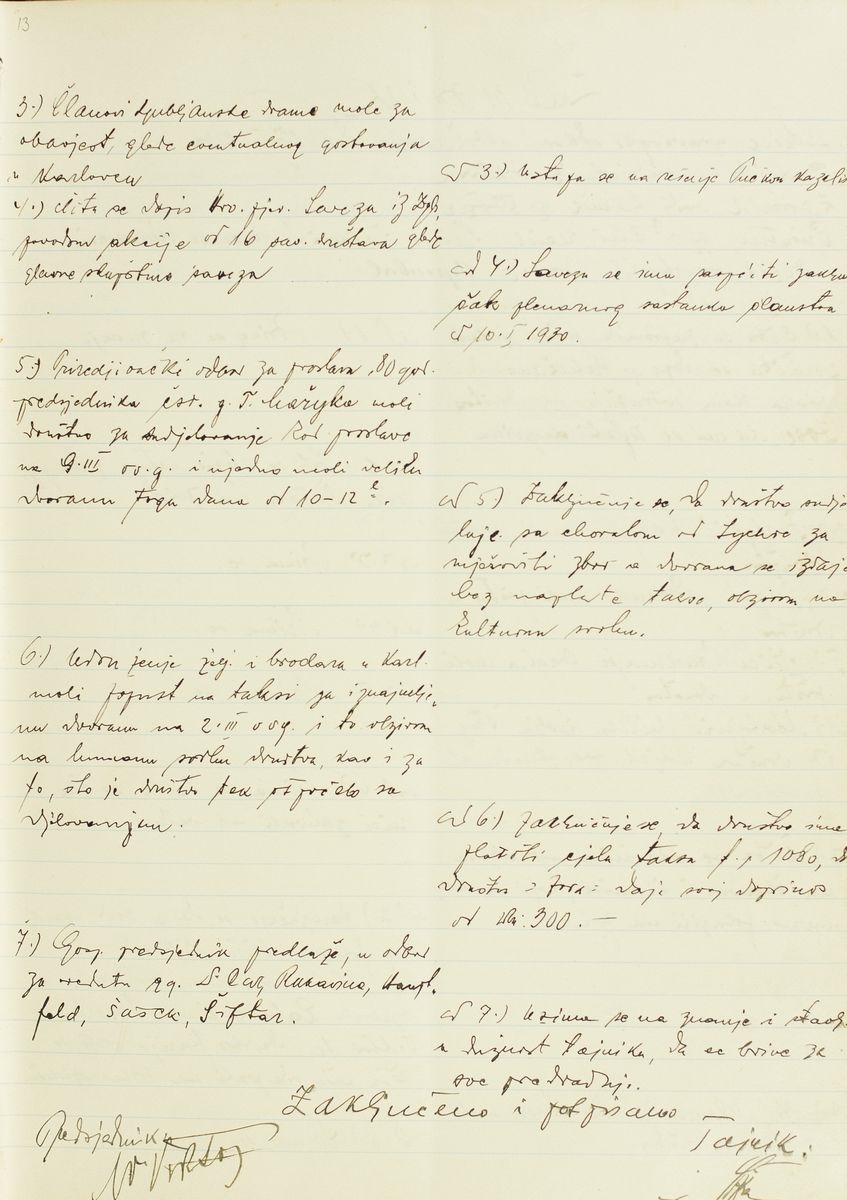 13
3.) Članovi Ljubljanske drame mole za
obavjest, glede eventualnog gostovanja
u Karlovcu
4.) Čita se dopis Hrv. pjev. Saveza iz Zgb,
povodom akcije od 16 sav. društava glede
glavne skupštine saveza
5.) Priredjivački odbor za proslavu 80 god.
predsjednika čsr. g. T. Masaryka moli
društvo za sudjelovanje kod proslave
na 9.III ov. g. i ujedno moli veliku
dvoranu toga dana od 10-12
6.) Udruženje želj. i brodara u Karl.
moli popust na taksi za iznajmlje
nu dvoranu na 2.III ovg. i to obzirom
na humanu svrhu društva, kao i za
to, što je društvo tek otpočelo sa
djelovanjem.
7.) Gosp. predsjednik predlaže, u odbor
za redutu gg. Dr Rukavina,
feld, Šašek, Šiftar.
ad 3.) Ustupa se na rešenje Pučkom kazališ
ad 4.) Savezu se ima saopćiti zaklju
čak plenarnog sastanka članstva
od 10.I 1930.
ad 5) Zaključuje se, da društvo sudje
luje sa choralom od za
mješoviti zbor a dvorana se izdaje
bez naplate takse, obzirom na
kulturnu svrhu.
ad 6.) Zaključuje se, da društvo ima
platiti cijelu taksu t.j. 1080, a
društvo "Zora" daje svoj doprinos
od Din. 300.—
ad 7.) Uzima se na znanje i stavlj.
u dužnost tajnika, da se brine za
sve predradnje.
Zaključeno i potpisano
Predsjednik
Tajnik: